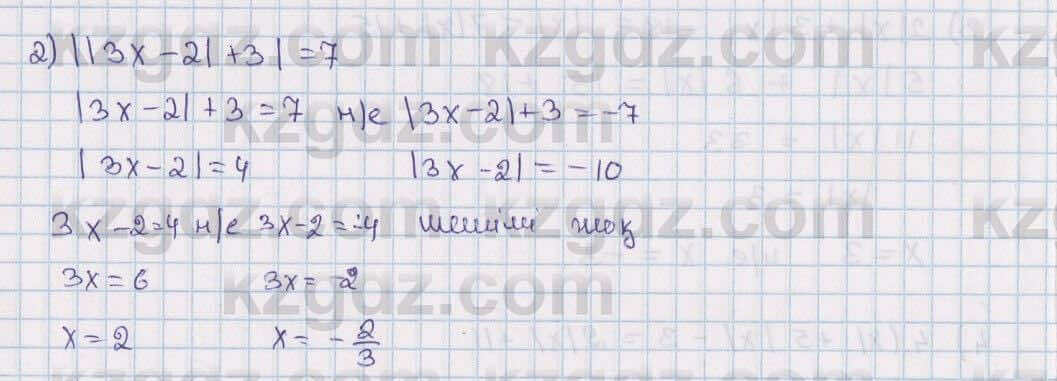 2) ||3x-2|+3|=7
|3x-2|+3=7 н/е |3x-2|+3=-7
|3x-2|=4 |3x-2|=-10
3x-2=4 н/е 3x-2=-4 шешімі жоқ
3x=6 3x=-2
x=2 x=-2/3
kzgdz.com